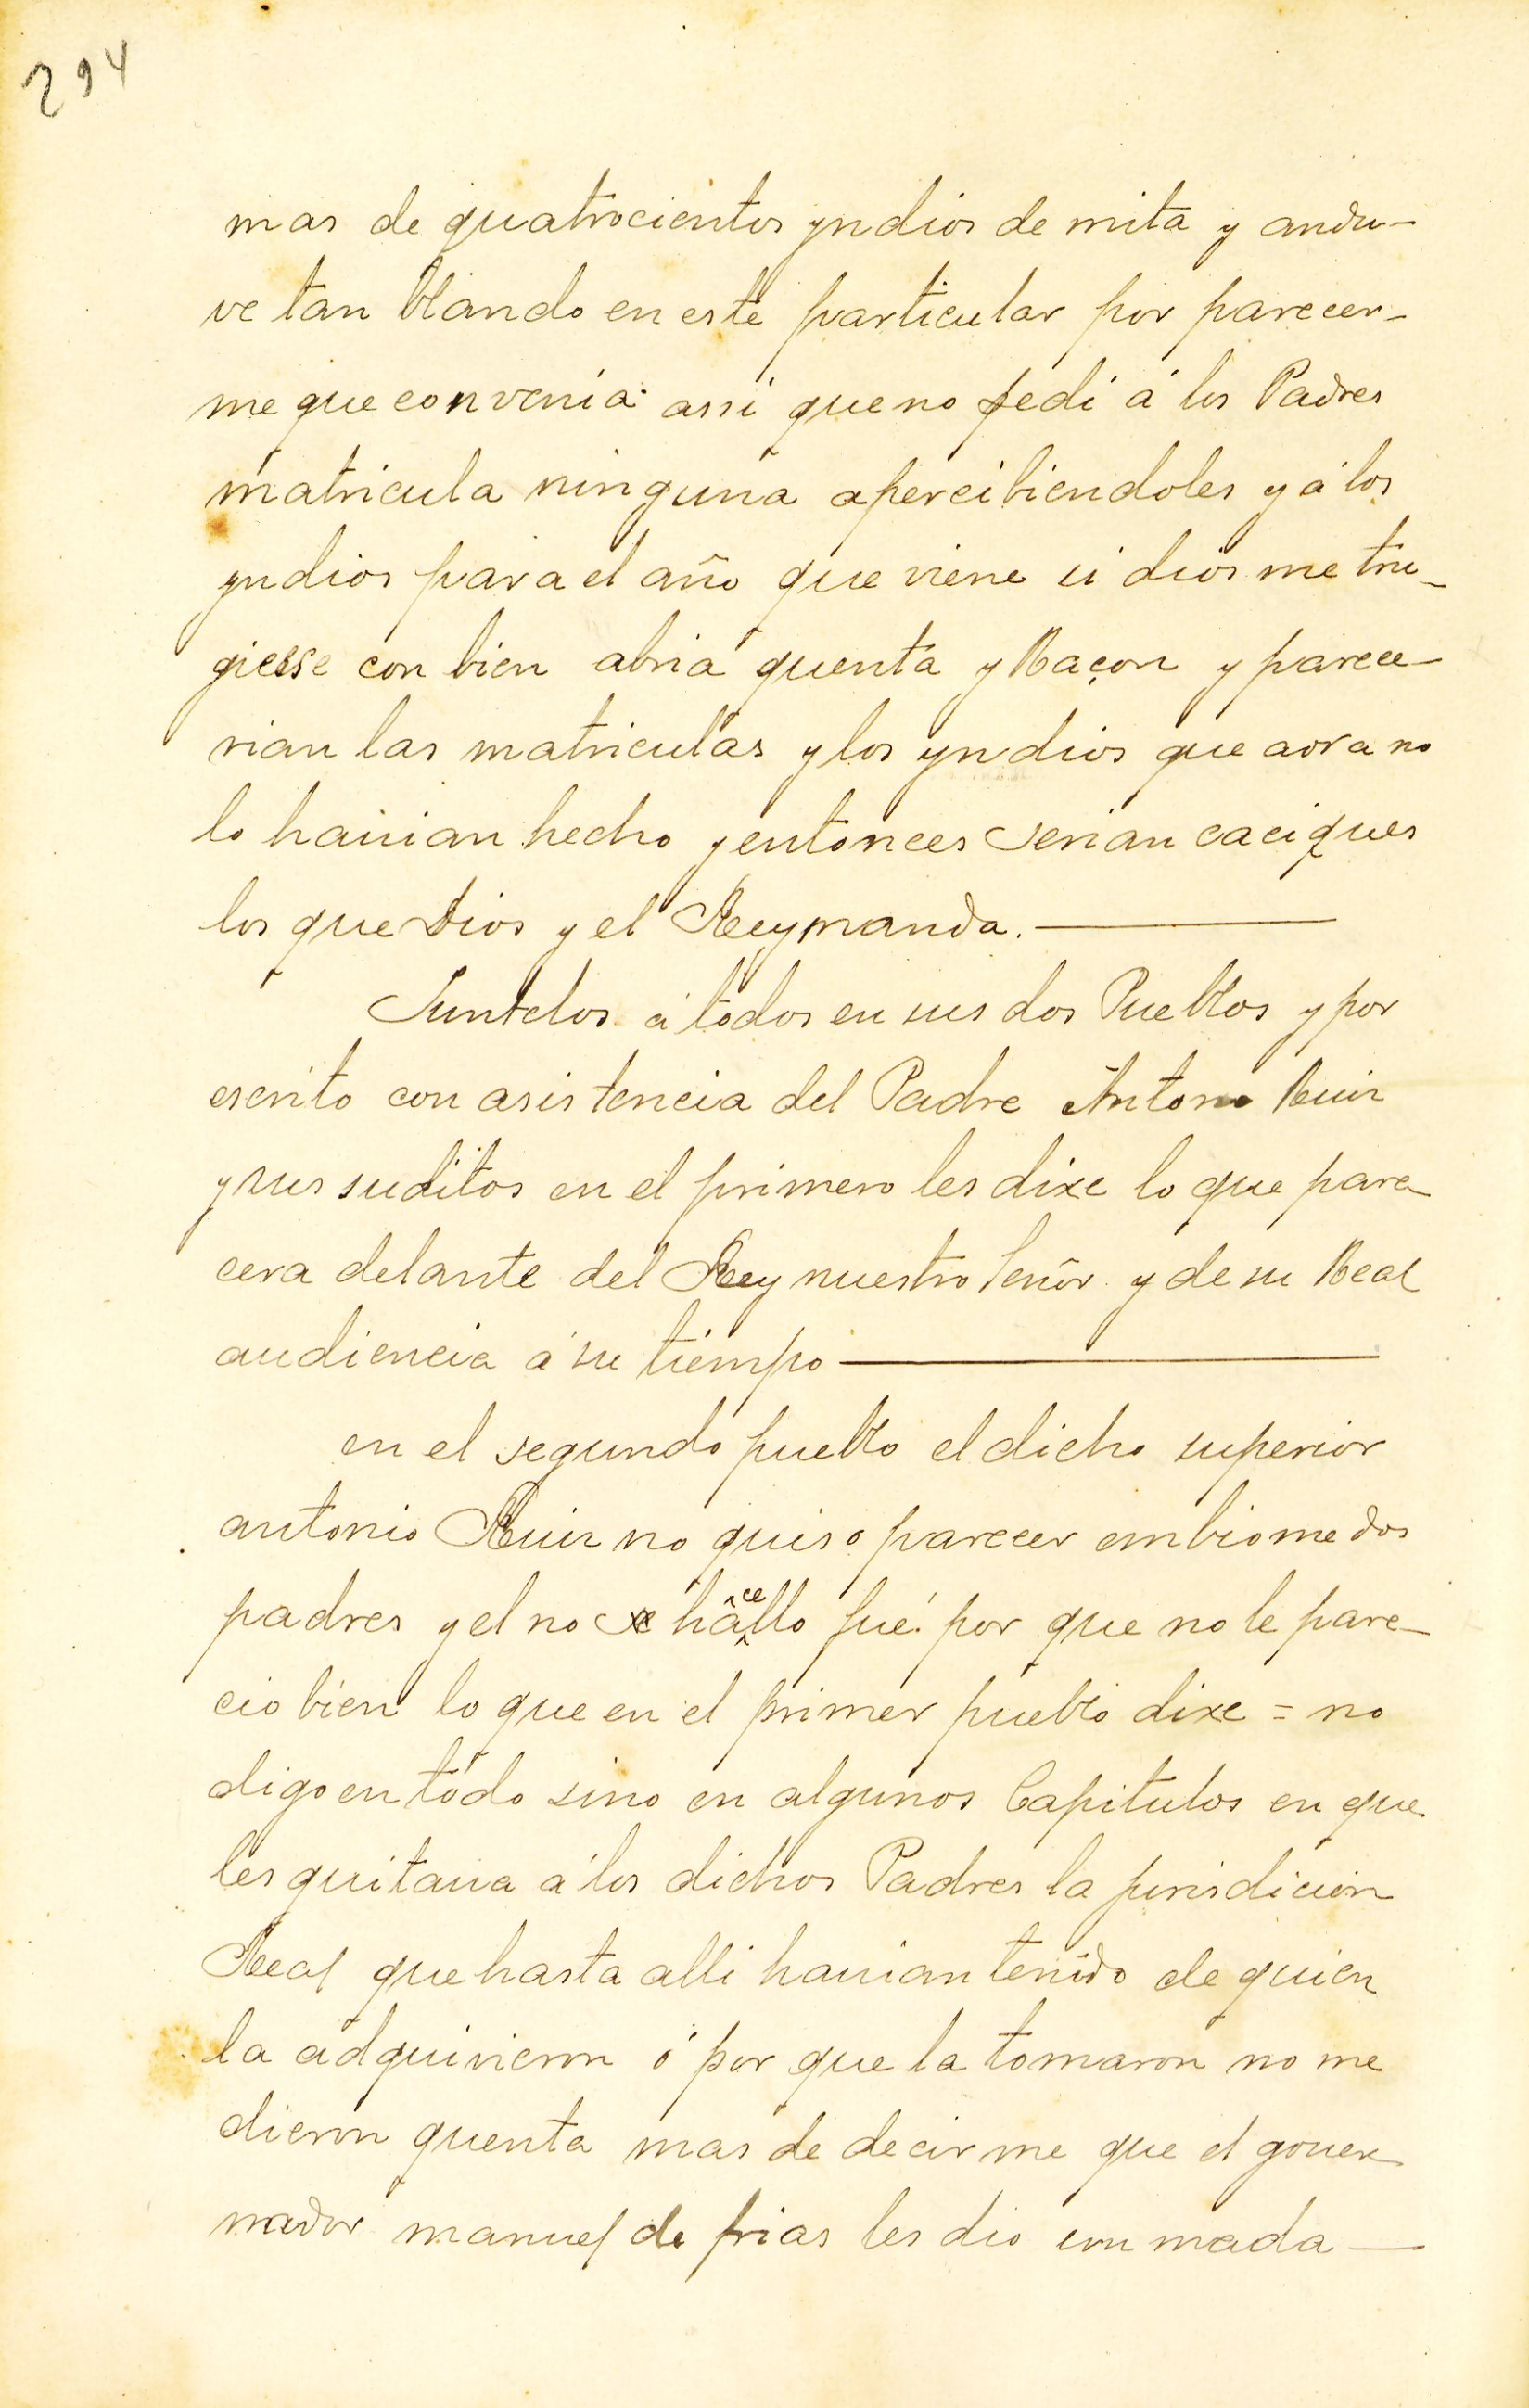 294
mas de quatrocientos yndios de mita y andu-
ve tan blando en este particular por parecer-
me que convenia assi que no pedi á los Padres
matricula ninguna apercibiendoles y á los
yndios para el año que viene si dios me tru-
giesse con bien abria quenta y Raçon y parece-
rian las matriculas y los yndios que aora no
lo hauian hecho y entonces serian caciques
los que Dios y el Rey manda.
Juntelos á todos en sus dos Pueblos y por
escrito con asistencia del Padre Antonio Ruiz
y sus suditos en el primero les dixe lo que pare-
cera delante del Rey nuestro Señor y de su Real
audiencia á su tiempo
en el segundo pueblo el dicho superior
antonio Ruiz no quiso parecer embiome dos
padres y el no se hallo fué por que no le pare-
cio bien lo que en el primer pueblo dixe = no
digo en todo sino en algunos Capitulos en que
les quitaua á los dichos Padres la jurisdicion
Real que hasta alli hauian tenido de quien
la adquirieron ó por que la tomaron no me
dieron quenta mas de decirme que el gouer-
nador manuel de frias les dio con mada-